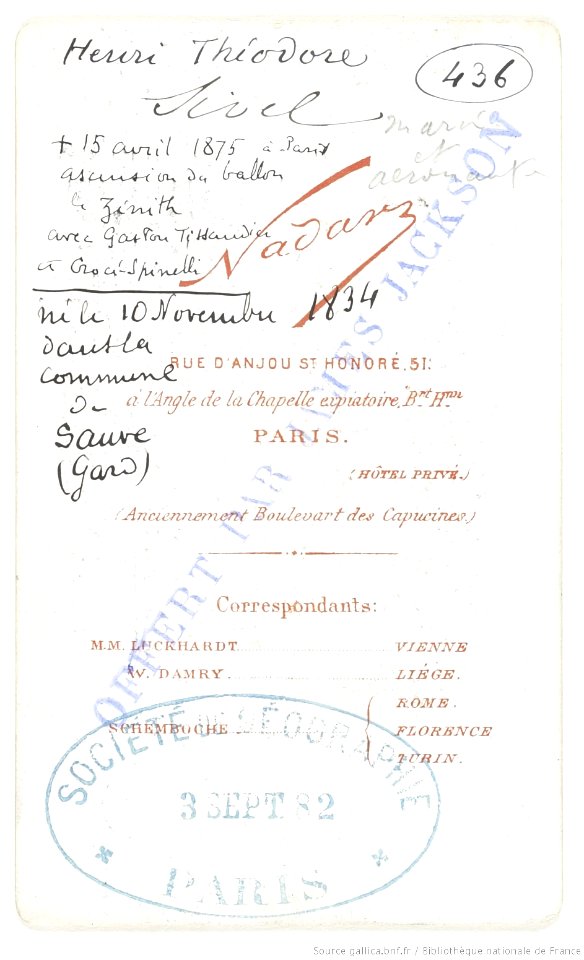 Henri Théodore
436
Sivel
marin
et
aéronaute
+ 15 avril 1875 à Paris
ascension du ballon
le Zénith
avec Gaston Tissandier
et Crocé-Spinelli
Nadar
né le 10 Novembre 1834
dans la
commune
de
Sauve
(Gard)
RUE D'ANJOU ST HONORÉ, 51.
à l'Angle de la Chapelle expiatoire, Brt Hmn
PARIS.
(HÔTEL PRIVÉ.)
(Anciennement Boulevart des Capucines.)
OFFERT PAR JAMES JACKSON
Correspondants:
M.M. LUCKHARDT VIENNE
W. DAMRY. LIÉGE.
SCHEMBOCHE { ROME.
FLORENCE
TURIN.
SOCIÉTÉ DE GÉOGRAPHIE
3 SEPT 82
PARIS
Source gallica.bnf.fr / Bibliothèque nationale de France